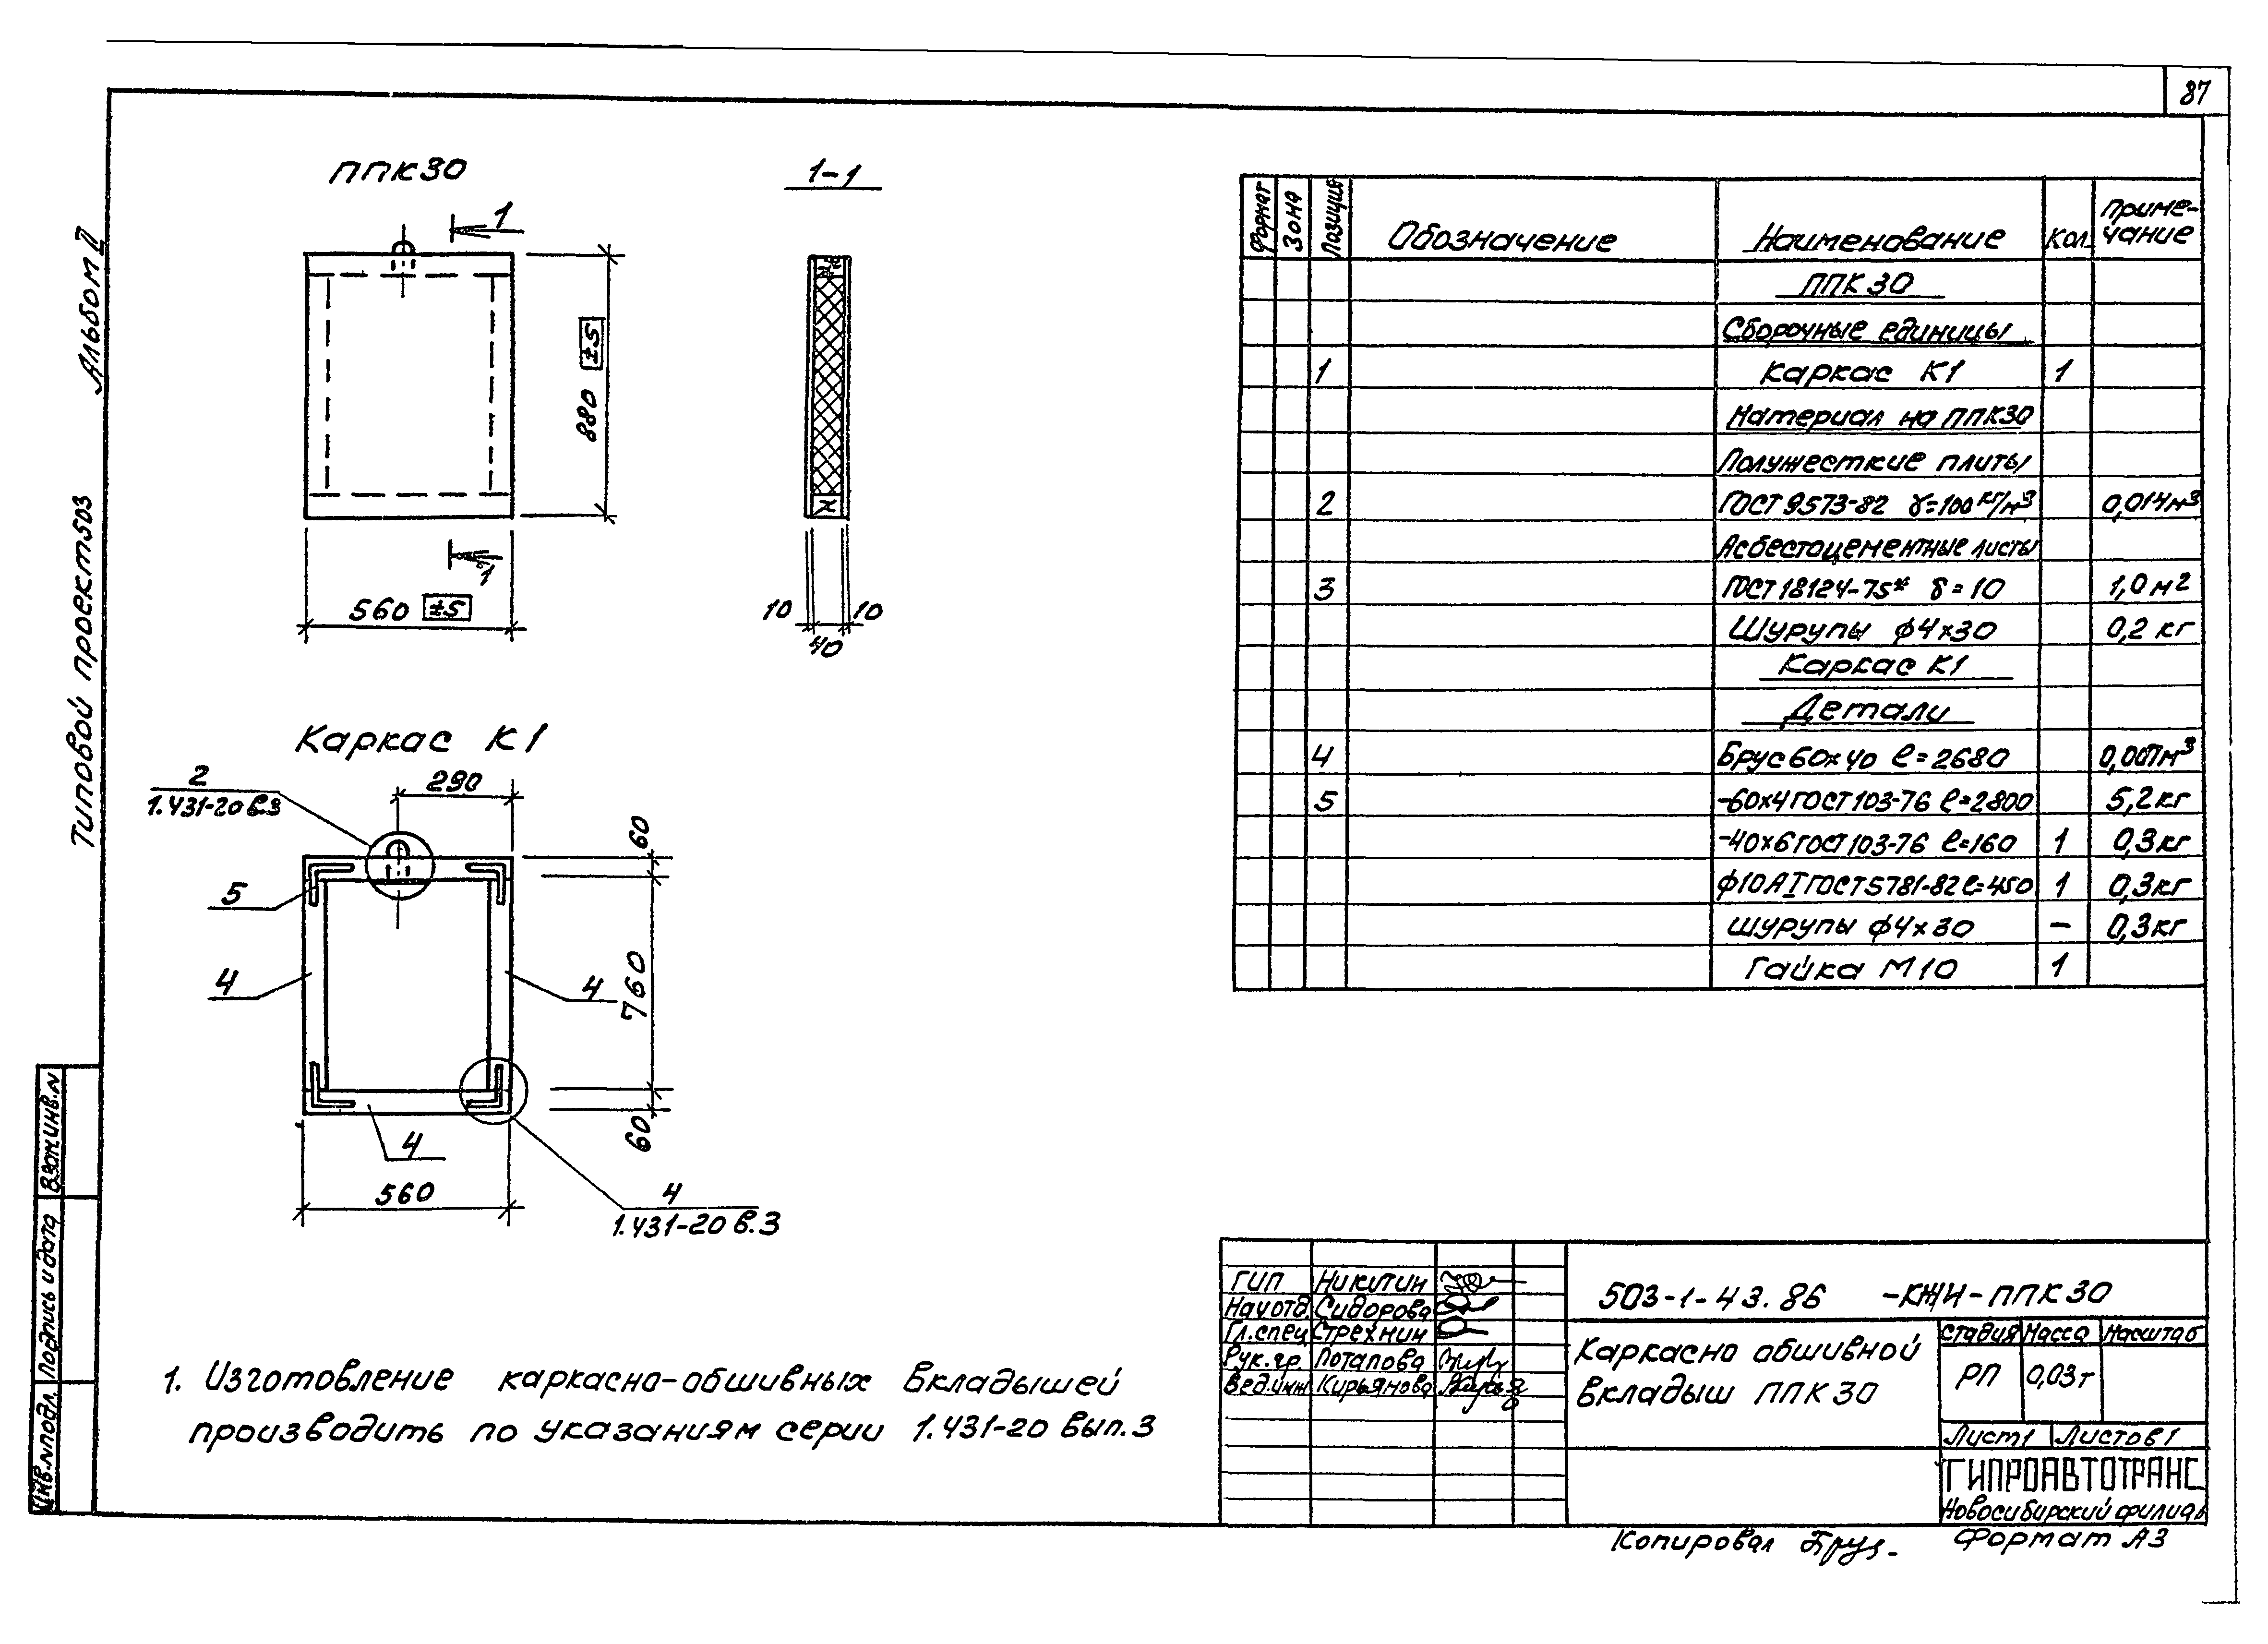 87
Альбом II
Типовой проект 503
ППК30
1
880 ±5
1
560 ±5
1-1
10
40
10
Каркас К1
2
1.431-20 в.3
290
60
5
4
4
760
60
4
560
4
1.431-20 в.3
1. Изготовление каркасно-обшивных вкладышей
производить по указаниям серии 1.431-20 вып.3
Формат Зона Позиция Обозначение Наименование Кол. Приме-
чание
ППК 30
Сборочные единицы
1 Каркас К1 1
Материал на ППК30
Полужесткие плиты
2 ГОСТ 9573-82 γ=100 кг/м³ 0,014м³
Асбестоцементные листы
3 ГОСТ 18124-75* δ=10 1,0 м²
Шурупы ф4х30 0,2 кг
Каркас К1
Детали
4 Брус 60х40 ℓ=2680 0,007м³
5 -60х4 ГОСТ 103-76 ℓ=2800 5,2кг
-40х6 ГОСТ 103-76 ℓ=160 1 0,3кг
ф10АI ГОСТ 5781-82 ℓ=450 1 0,3кг
Шурупы ф4х30 - 0,3кг
Гайка М10 1
ГИП Никитин
Нач.отд. Сидорова
Гл.спец Стрехнин
Рук.гр. Потапова
Вед.инж Кирьянова
503-1-43.86 -КЖИ-ППК30
Каркасно обшивной
вкладыш ППК30
Стадия Масса Масштаб
РП 0,03т
Лист 1 Листов 1
ГИПРОАВТОТРАНС
Новосибирский филиал
Копировал
Формат А3
Взам.инв.N
Подпись и дата
Инв.Nподл.